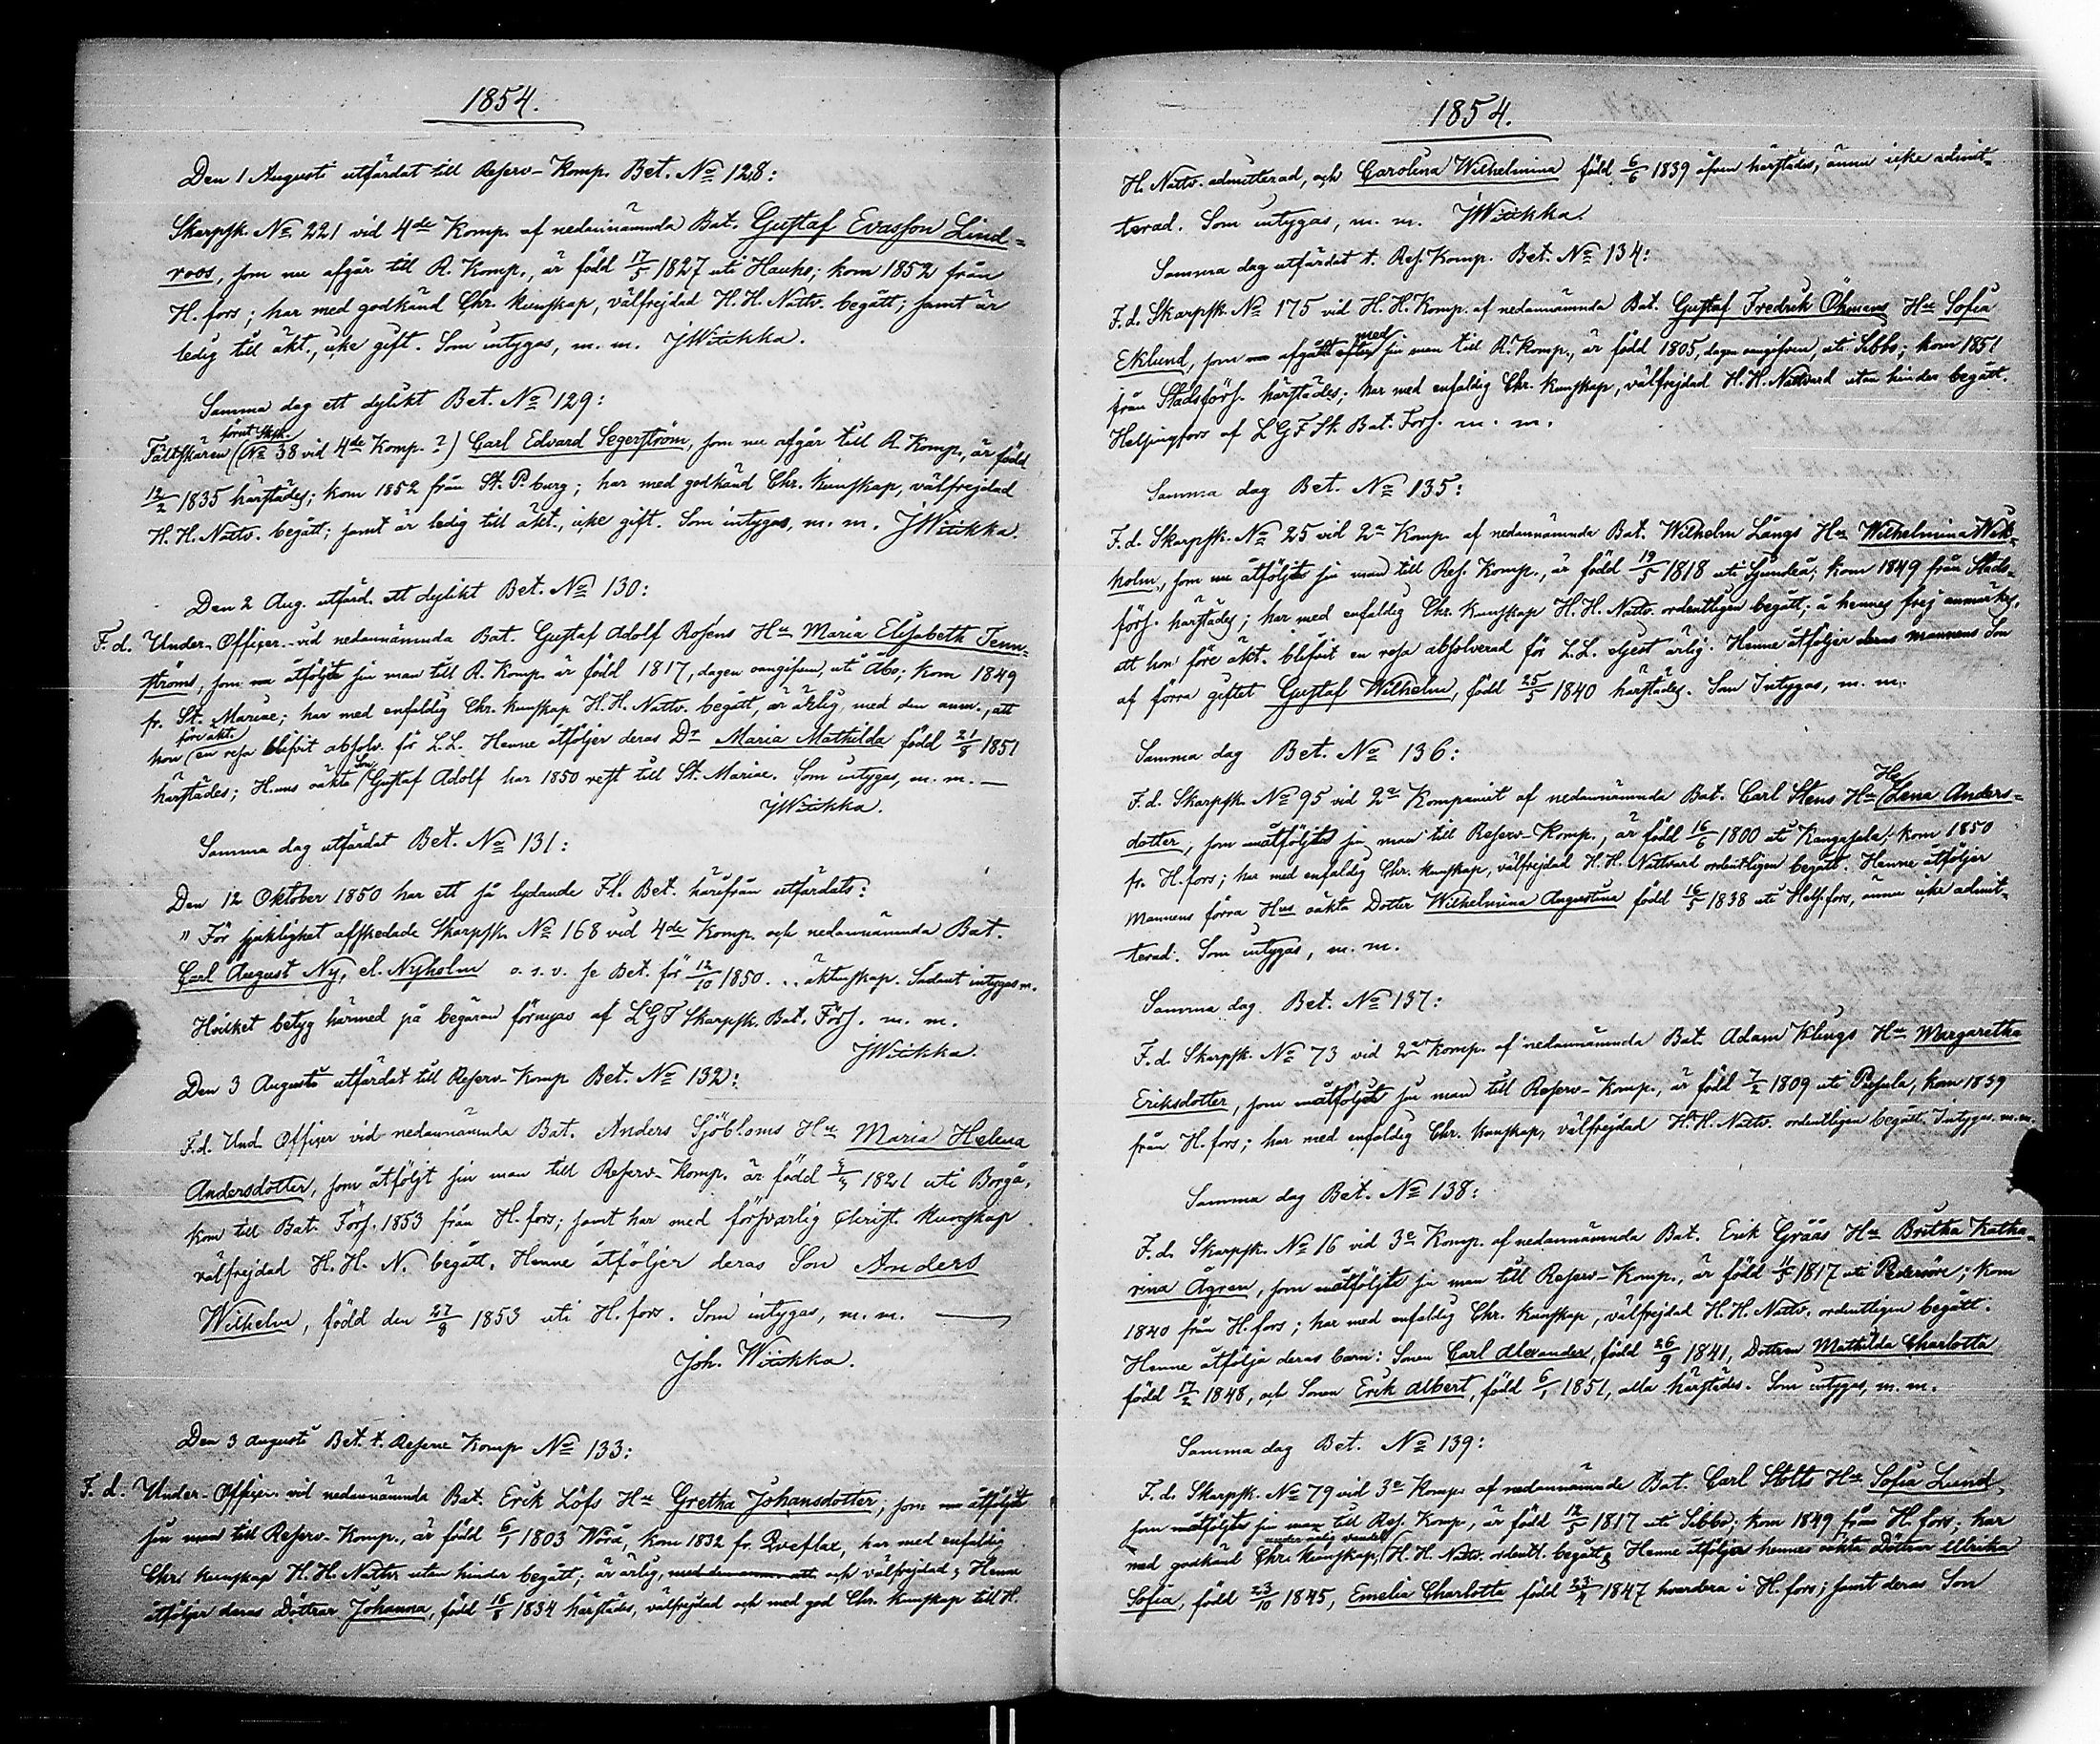 1854.
Den 1 Augusti utfärdat till Reserv-Komp. Bet. No 128:
Skarpsk. No 221 vid 4de Komp. af nedannämnda Bat. Gustaf Evasson Lind-
roos, som nu afgår till R. Komp., är född 17/5 1827 uti Hauho; kom 1852 från
H.fors; har med godkänd Chr. kunskap, välfrejdad H.H. Nattv. begått; samt är
ledig till äkt., icke gift. Som intygas, m. m. JWitikka.
Samma dag ett dylikt Bet. No 129:
Fältskären (förut Skpk. No 38 vid 4de Komp. ?) Carl Edvard Segerström, som nu afgår till R. Komp., är född
12/2 1835 härstädes; kom 1852 från St. P.burg; har med godkänd Chr. kunskap, välfrejdad
H. H. Nattv. begått; samt är ledig till äkt., icke gift. Som intygas, m. m. JWitikka.
Den 2 Aug. utfärd. ett dylikt Bet. No 130:
F. d. Under-Officer vid nedannämnda Bat. Gustaf Adolf Roséns Hu Maria Elisabeth Tenn-
ströms, som åtföljt sin man till R. Komp. är född 1817, dagen oangifven, uti Åbo; kom 1849
fr. St. Mariae; har med enfaldig Chr. kunskap H.H. Nattv. begått, är ärlig, med den anm., att
hon före äkt. en resa blifvit absolv. för L.L. Henne åtföljer deras Dr Maria Mathilda född 21/8 1851
härstädes; H.nnes oäkta Son Gustaf Adolf har 1850 rest till St. Mariae. Som intygas, m. m. —
JWitikka.
Samma dag utfärdat Bet. No 131:
Den 12 Oktober 1850 har ett så lydande Fl. Bet. härifrån utfärdats:
" För sjuklighet afskedade Skarpsk. No 168 vid 4de Komp. och nedannämnda Bat.
Carl August Ny, el. Nyholm o. s. v. se Bet. för 12/10 1850 . . . äktenskap. Sådant intygas m.
Hvilket betyg härmed på begäran förnyas af LGF Skarpsk. Bat. Förs. m. m.
JWitikka.
Den 3 Augusti utfärdat till Reserv-Komp Bet. No 132:
F.d. Und Officer vid nedannämnda Bat. Anders Sjöbloms Hu Maria Helena
Andersdotter, som åtföljt sin man till Reserv-Komp. är född 1821 uti Borgå,
kom till Bat. Förs. 1853 från H.fors; samt har med försvarlig Christ. kunskap
välfrejdad H. H. N. begått. Henne åtföljer deras Son Anders
Wilhelm, född den 27/8 1853 uti H.fors. Som intygas, m. m. —
Joh. Witikka.
Den 3 Augusti Bet. t. Reserve Komp No 133:
F. d. Under-Officer vid nedannämnda Bat. Erik Löfs Hu Gretha Johansdotter, som åtföljt
sin man till Reserv-Komp., är född 6/1 1803 Wörå, kom 1832 fr. Qveflax, har med enfaldig
Chr. kunskap H. H. Nattv. utan hinder begått; är ärlig, med den anm. att och välfrejdad; Henne
åtföljer deras Döttrar Johanna, född 1834 härstädes, välfrejdad och med god Chr. kunskap till H.
1854.
H. Nattv. admitterad, och Carolina Wilhelmina född 6/6 1839 äfven härstädes, ännu icke admit-
terad. Som intygas, m. m. JWitikka.
Samma dag utfärdat t. Res. Komp. Bet. No 134:
F. d. Skarpsk. No 175 vid H. H. Komp. af nedannämnda Bat. Gustaf Fredrik Öhmans Hu Sofia
Eklund, som afgått med sin man till R. Komp., är född 1805, dagen oangifven, uti Sibbo; kom 1851
från Stadsförs. härstädes; har med enfaldig Chr. kunskap, välfrejdad H. H. Nattvard utan hinder begått.
Helsingfors af LGF Sk. Bat. Förs. m. m.
Samma dag Bet. No 135:
F. d. Skarpsk. No 25 vid 2a Komp. af nedannämnda Bat. Wilhelm Långs Hu Wilhelmina Wik-
holm, som åtföljt sin man till Res. Komp., är född 19/5 1818 uti Sjundeå; kom 1849 från Stads-
förs. härstädes; har med enfaldig Chr. kunskap H. H. Nattv. ordentligen begått; å hennes frejd anmärkes,
att hon före äkt. blifvit en resa absolverad för L.L. eljest ärlig. Henne åtföljer deras mannens Son
af förra giftet Gustaf Wilhelm, född 25/5 1840 härstädes. Som Intygas, m. m.
Samma dag Bet. No 136:
F. d. Skarpsk. No 95 vid 2a Kompaniet af nedannämnda Bat. Carl Stens Hu Lena Anders-
dotter, som åtföljt sin man till Reserv-Komp., är född 16/6 1800 uti Kangasala; kom 1850
fr. H.fors; har med enfaldig Chr. kunskap, välfrejdad H. H. Nattvard ordentligen begått. Henne åtföljer
mannens förra Hus oäkta Dotter Wilhelmina Augustina född 16/5 1838 uti Hels.fors, ännu icke admit-
terad. Som intygas, m. m.
Samma dag. Bet. No 137:
F. d. Skarpsk. No 73 vid 2a Komp. af nedannämnda Bat. Adam Klings Hu Margaretha
Eriksdotter, som åtföljt sin man till Reserv-Komp., är född 7/2 1809 uti Pusula, kom 1839
från H.fors; har med enfaldig Chr. kunskap, välfrejdad H. H. Nattv. ordentligen begått. Intygas. m. m.
Samma dag Bet. No 138:
F. d. Skarpsk. No 16 vid 3e Komp. af nedannämnda Bat. Erik Grääs Hu Britha Katha-
rina Ågren, som åtföljt sin man till Reserv-Komp., är född 1817 uti Pedersöre; kom
1840 från H.fors; har med enfaldig Chr. kunskap, välfrejdad H. H. Nattv. ordentligen begått.
Henne åtfölja deras barn: Sonen Carl Alexander, född 26/9 1841, Dottren Mathilda Charlotta
född 17/2 1848, och Sonen Erik Albert, född 6/1 1851, alla härstädes. Som intygas, m. m.
Samma dag Bet. No 139:
F. d. Skarpsk. No 79 vid 3e Komp. af nedannämnde Bat. Carl Stolts Hu Sofia Lund,
som åtföljt sin man till Res. Komp, är född 12/5 1817 uti Sibbo; kom 1849 från H.fors; har
med godkänd Chr. kunskap, H. H. Nattv. ordentl. begått; Henne åtföljer hennes oäkta Döttrar Ullrika
Sofia, född 23/10 1845, Emelia Charlotta född 23/4 1847 hvardera i H.fors; samt deras Son